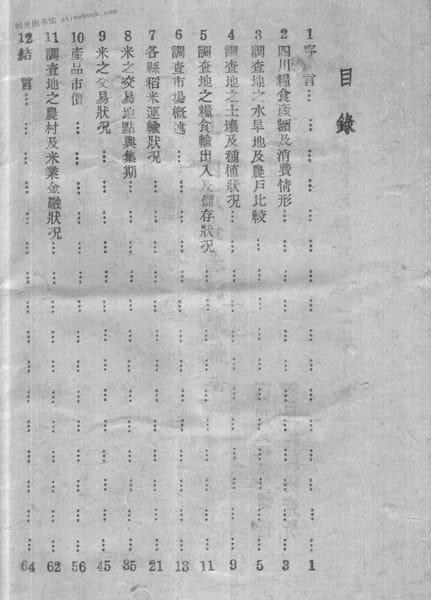 时光图书馆 atimebook.com
目錄
1 字言 1
2 四川糧食產額及消費情形 3
3 調查地之水旱地及農戶比較 5
4 調查地之土壤及種植狀況 9
5 調查地之糧食輸出入及儲存狀況 11
6 調查市場概述 13
7 各縣稻米運輸狀況 21
8 米之交易地點與集期 35
9 米之交易狀況 45
10 產品市價 56
11 調查地之農村及米業金融狀況 62
12 結言 64